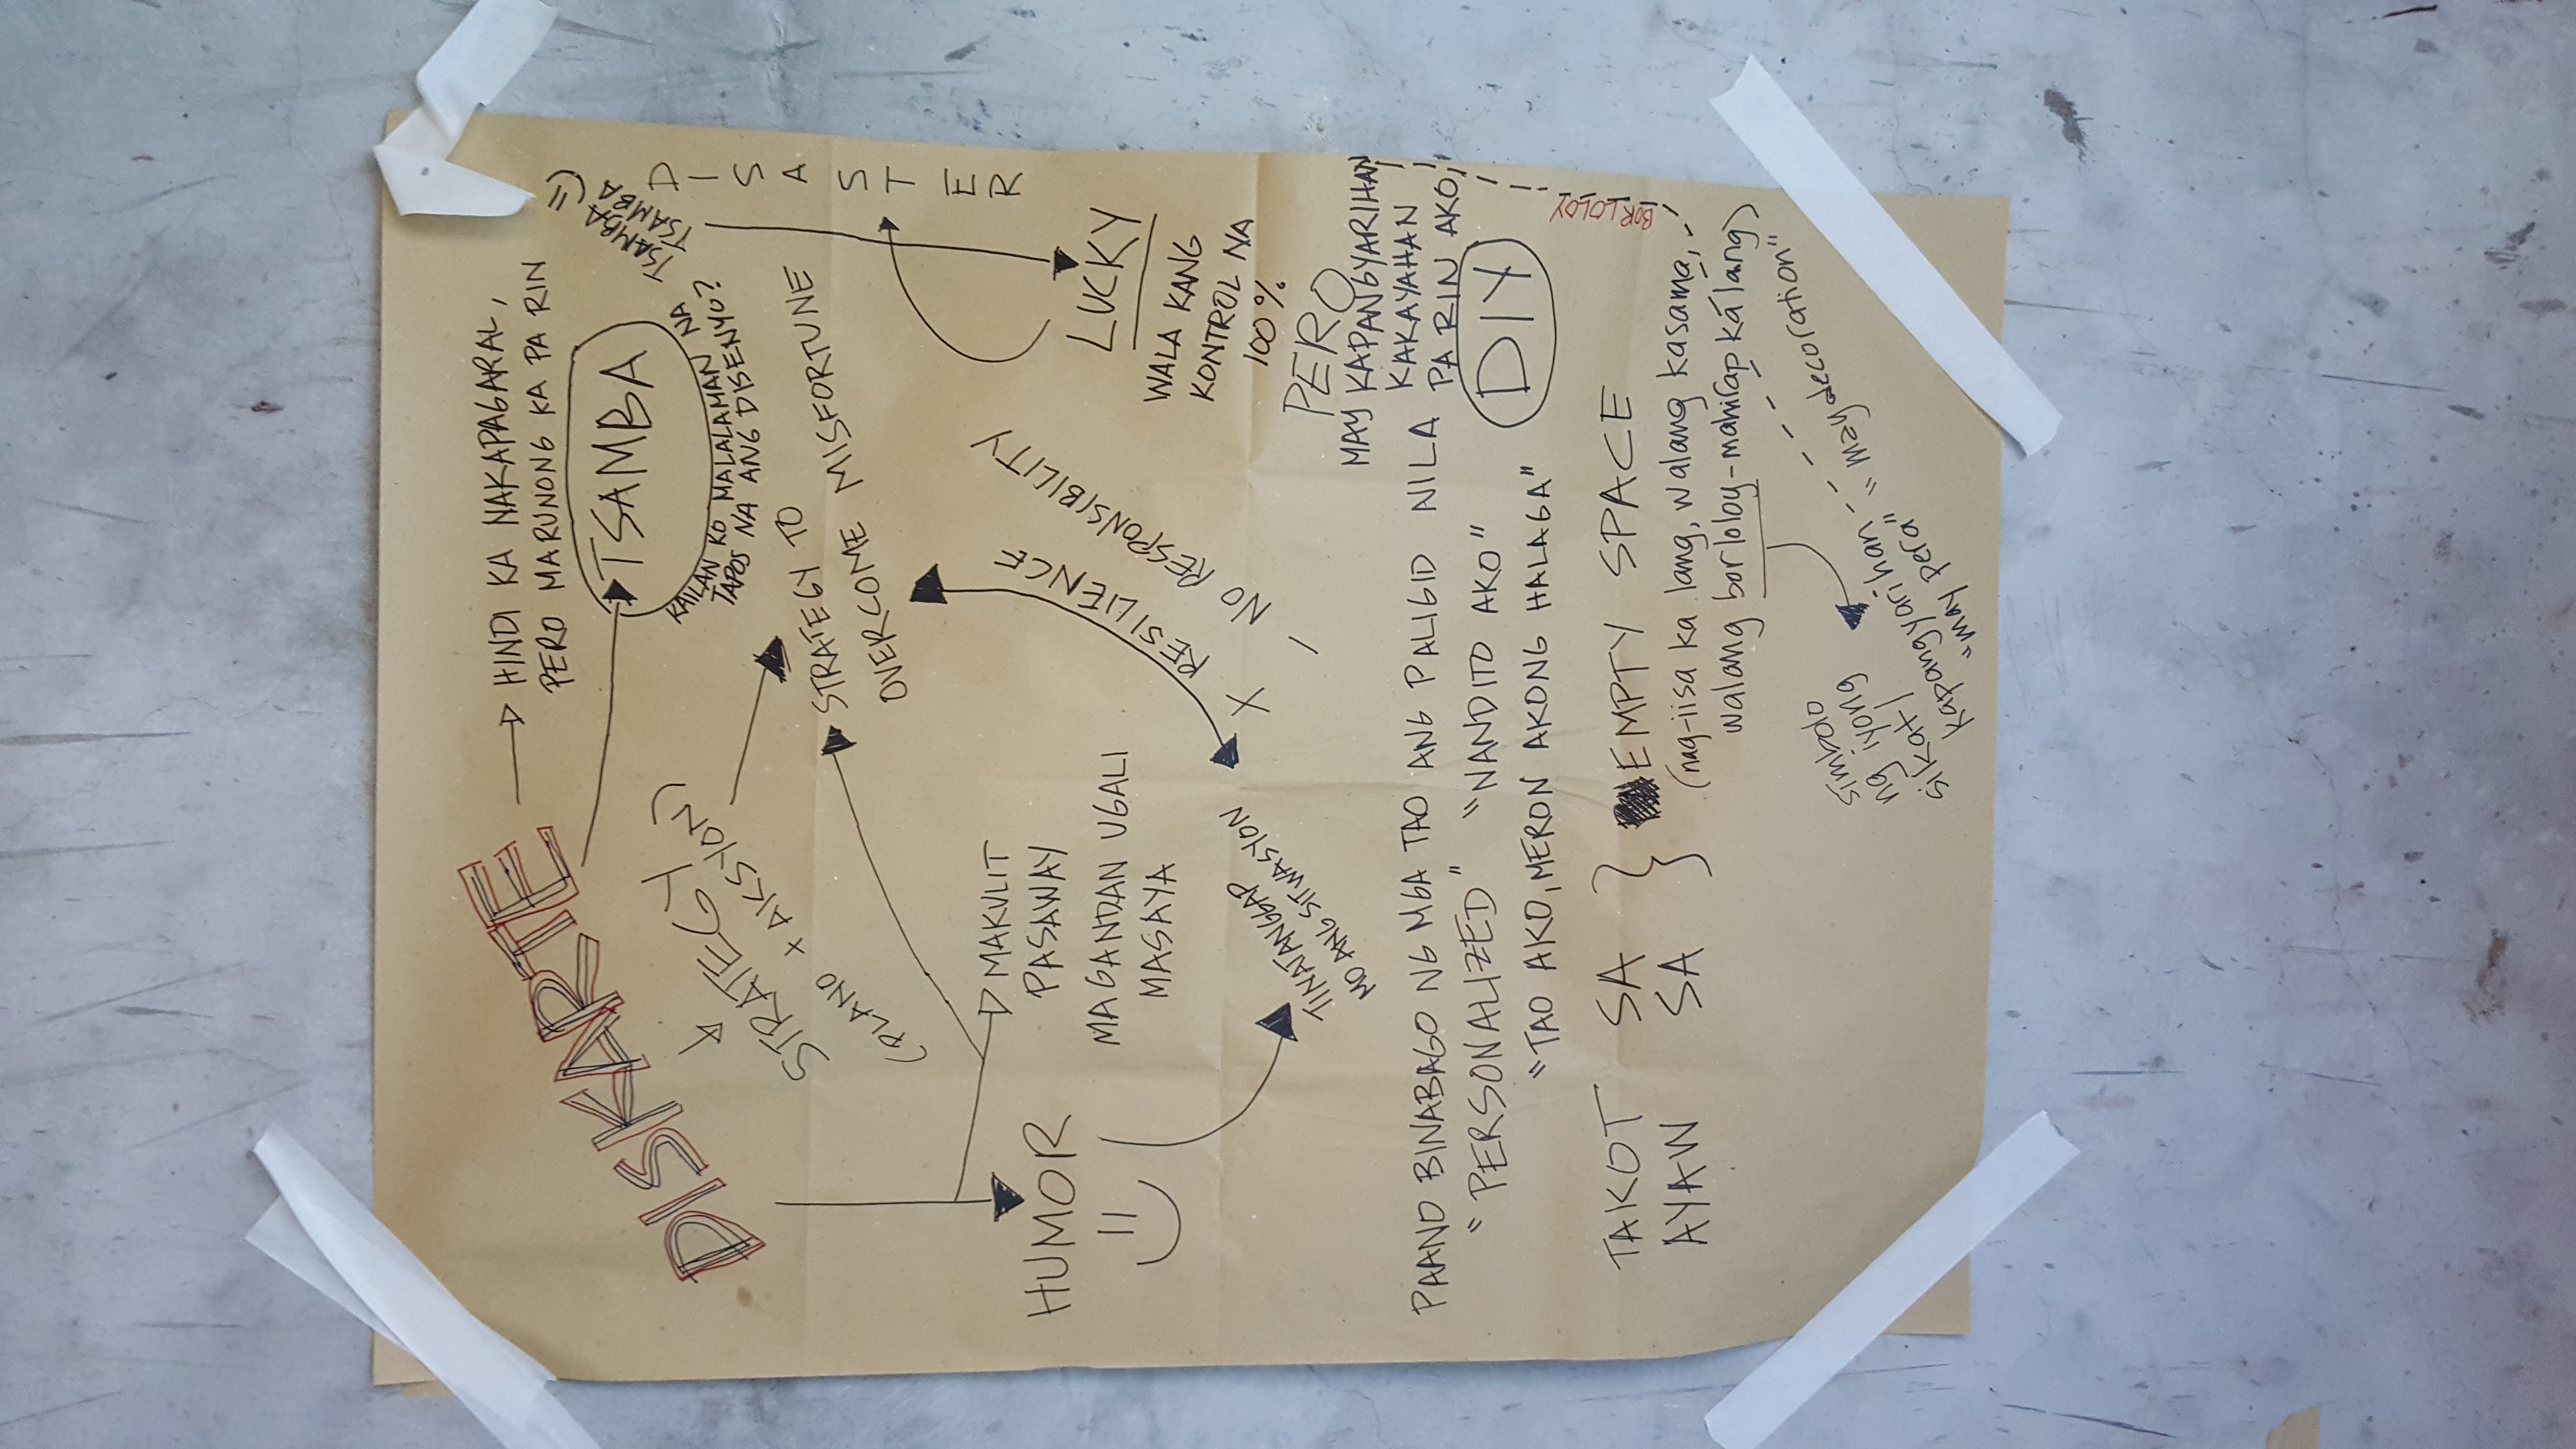 DISKARTE
HINDI KA NAKAPAGARAL,
PERO MARUNONG KA PA RIN
TSAMBA
TSAMBA
TSAMBA
TSAMBA
KAILAN KO MALALAMAN NA NA
TAPOS NA ANG DISENYO?
DISASTER
STRATEGY
(PLANO x AKSYON)
STRATEGY TO
OVERCOME MISFORTUNE
LUCKY
WALA KANG
KONTROL NA
100%
HUMOR
MAKULIT
PASAWAY
MAGANDAN UGALI
MASAYA
RESILIENCE
X / NO RESPONSIBILITY
TINATANGGAP
MO ANG SITWASYON
PERO
MAY KAPANGYARIHAN
KAKAYAHAN
PA RIN AKO
PAANO BINABAGO NG MGA TAO ANG PALIGID NILA
"PERSONALIZED" "NANDITO AKO"
"TAO AKO, MERON AKONG HALAGA"
DIY
BORLOLOY
TAKOT SA
AYAW SA
EMPTY SPACE
(nag-iisa ka lang, walang kasama,
walang borloloy - mahirap ka lang)
simbolo
ng iyong
sikat |
kapangyarihan = "may decoration"
"may pera"